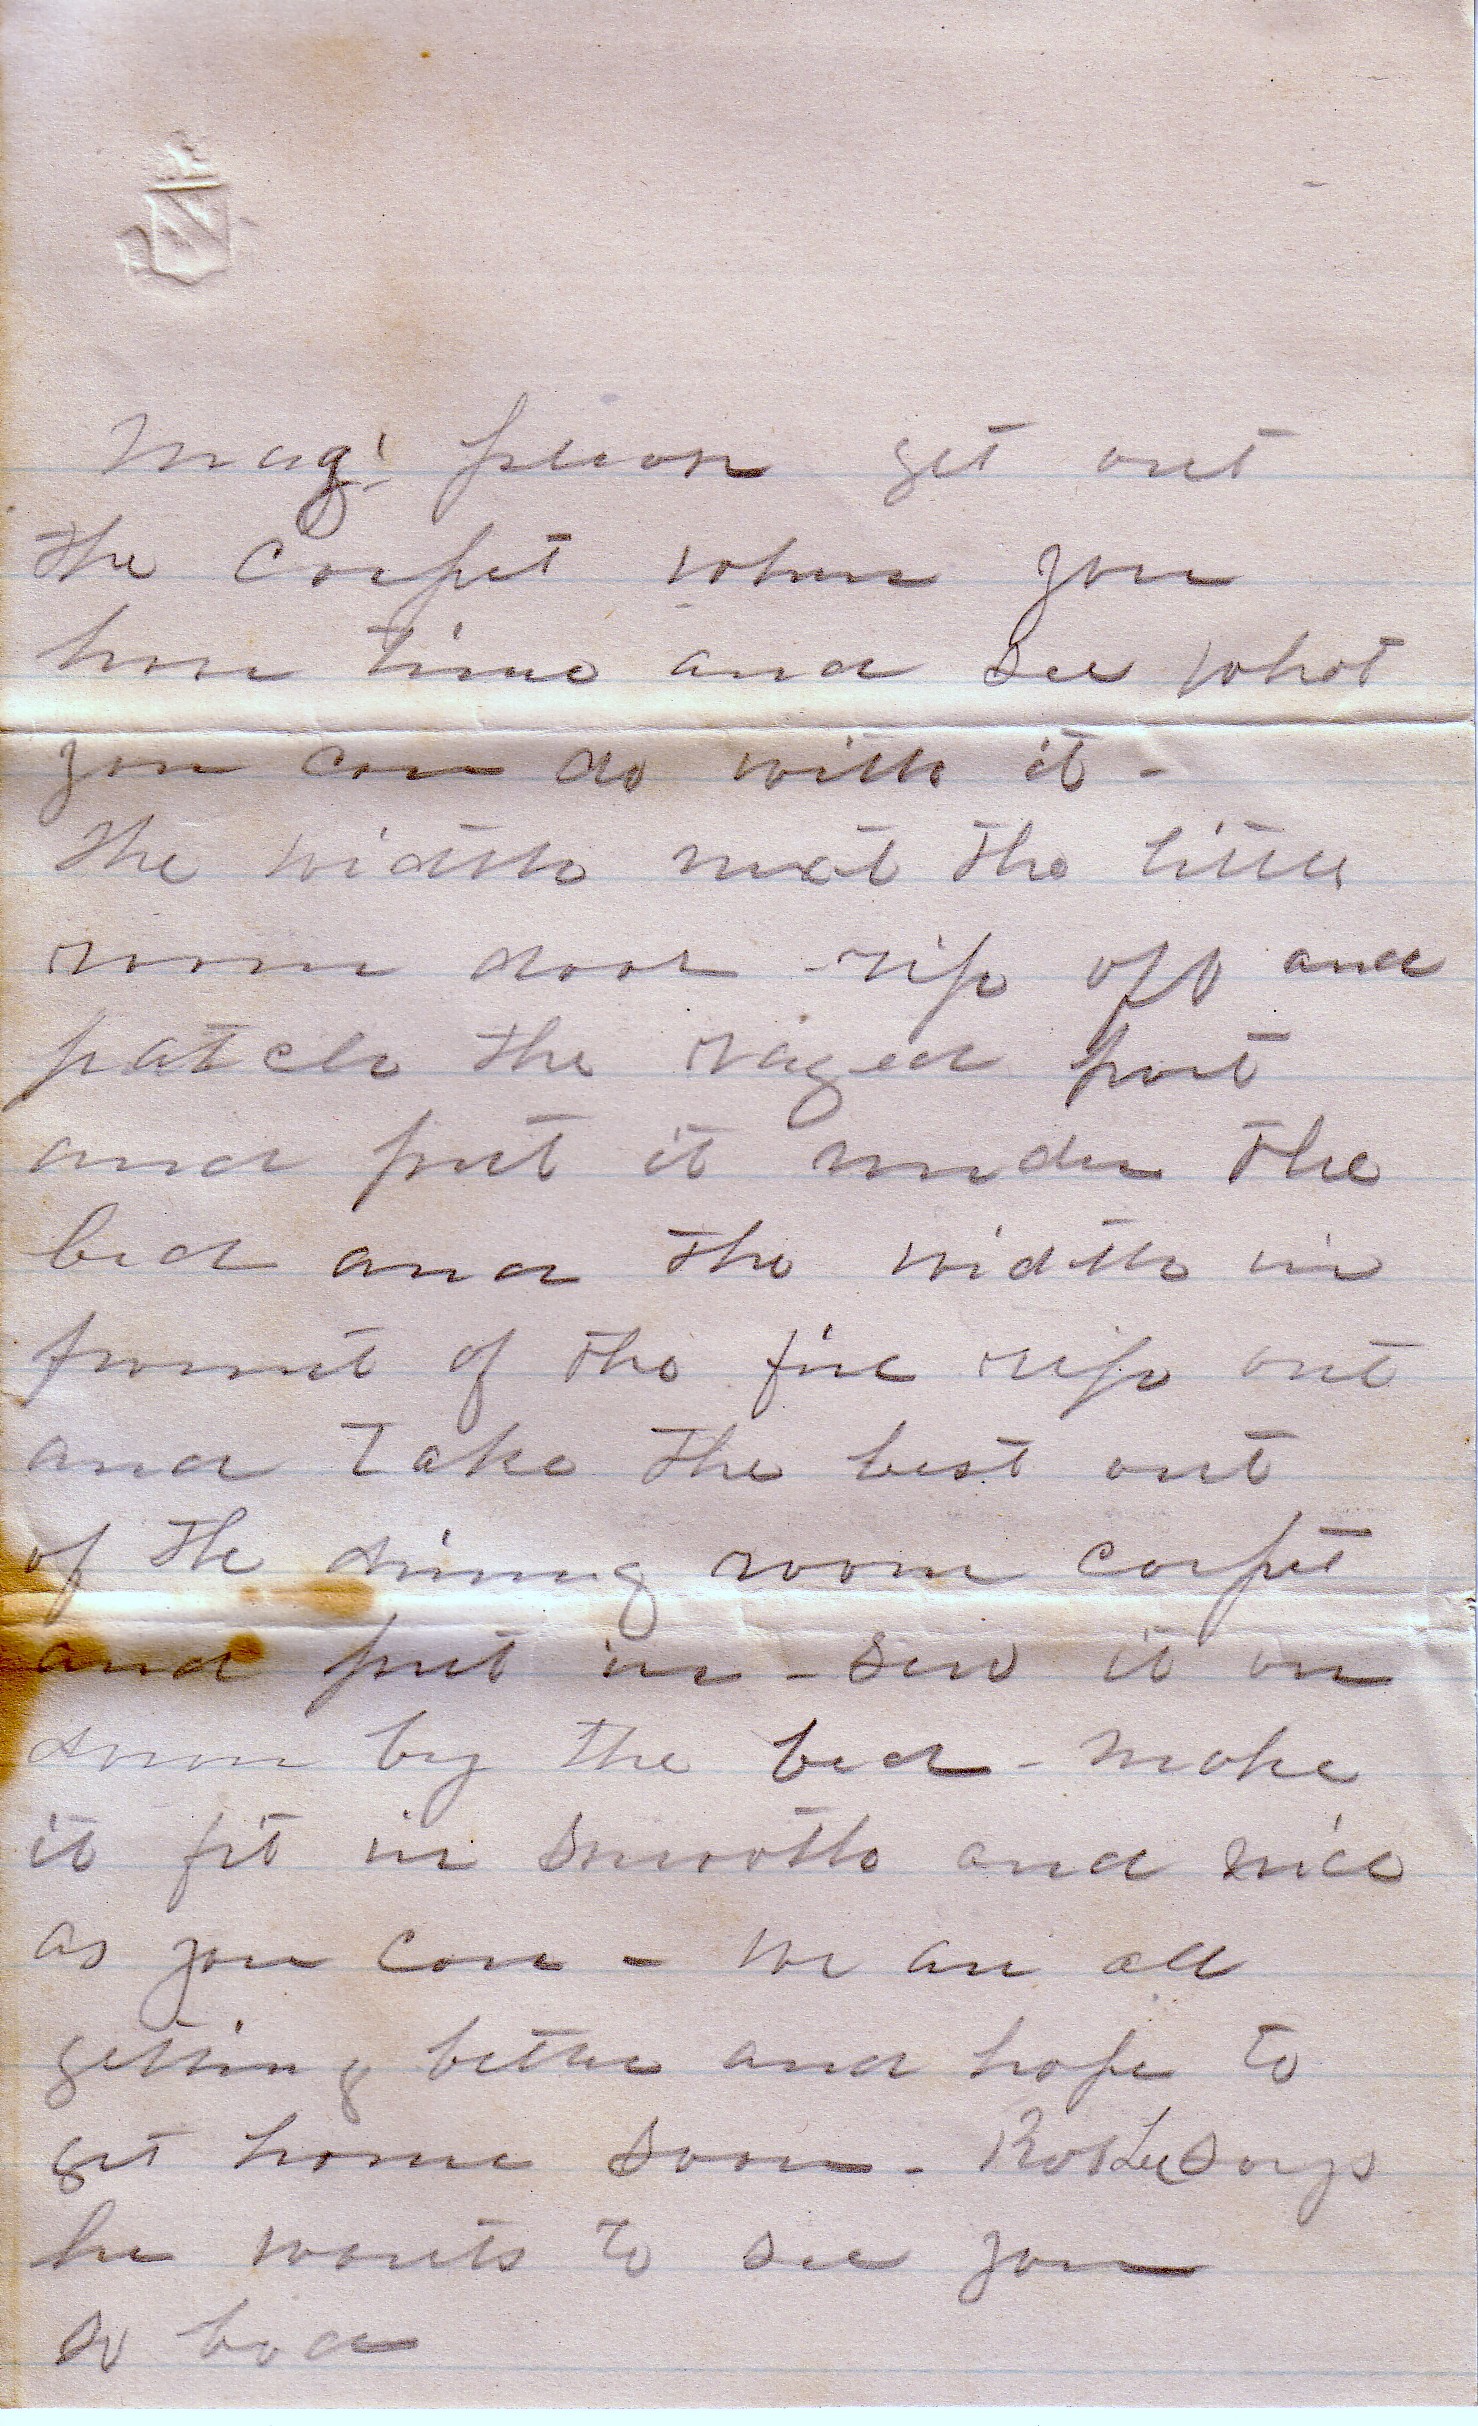 Mag! please get out
the carpet when you
have time and see what
you can do with it -
the width next the little
room door - rip off and
patch the raged part
and put it under the
bed and the width in
front of the fire rip out
and take the best out
of the dining room carpet
and put in - sew it on
down by the bed - make
it fit in smooth and nice
as you can - we are all
getting better and hope to
get home soon - Rob Lee says
he wants to see you
so bad